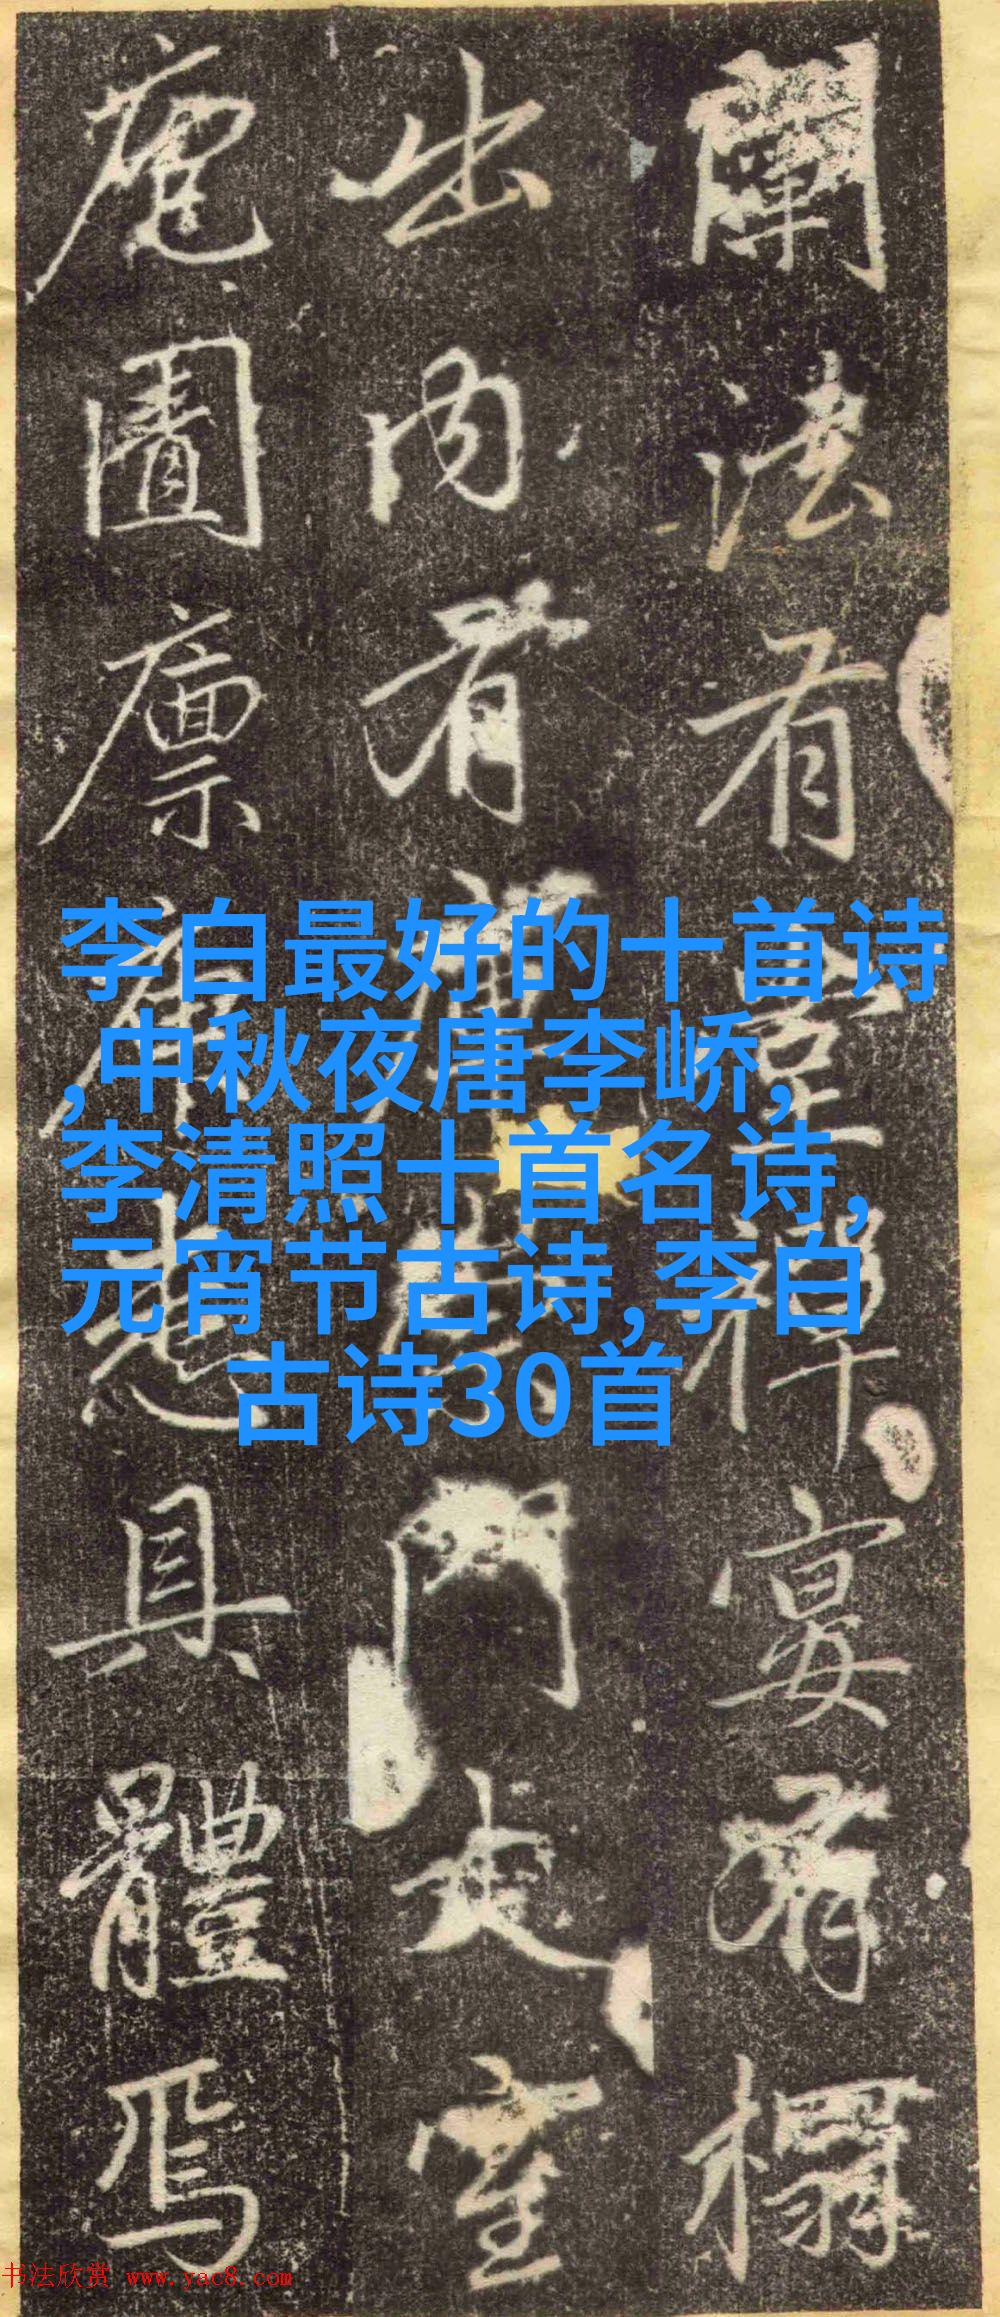 闡法有堂禪宴有榻
出內有門室
庖廩悉具體焉
李白最好的十首诗
,中秋夜唐李峤,
李清照十首名诗,
元宵节古诗,李白
古诗30首
书法欣赏 www.yac8.com